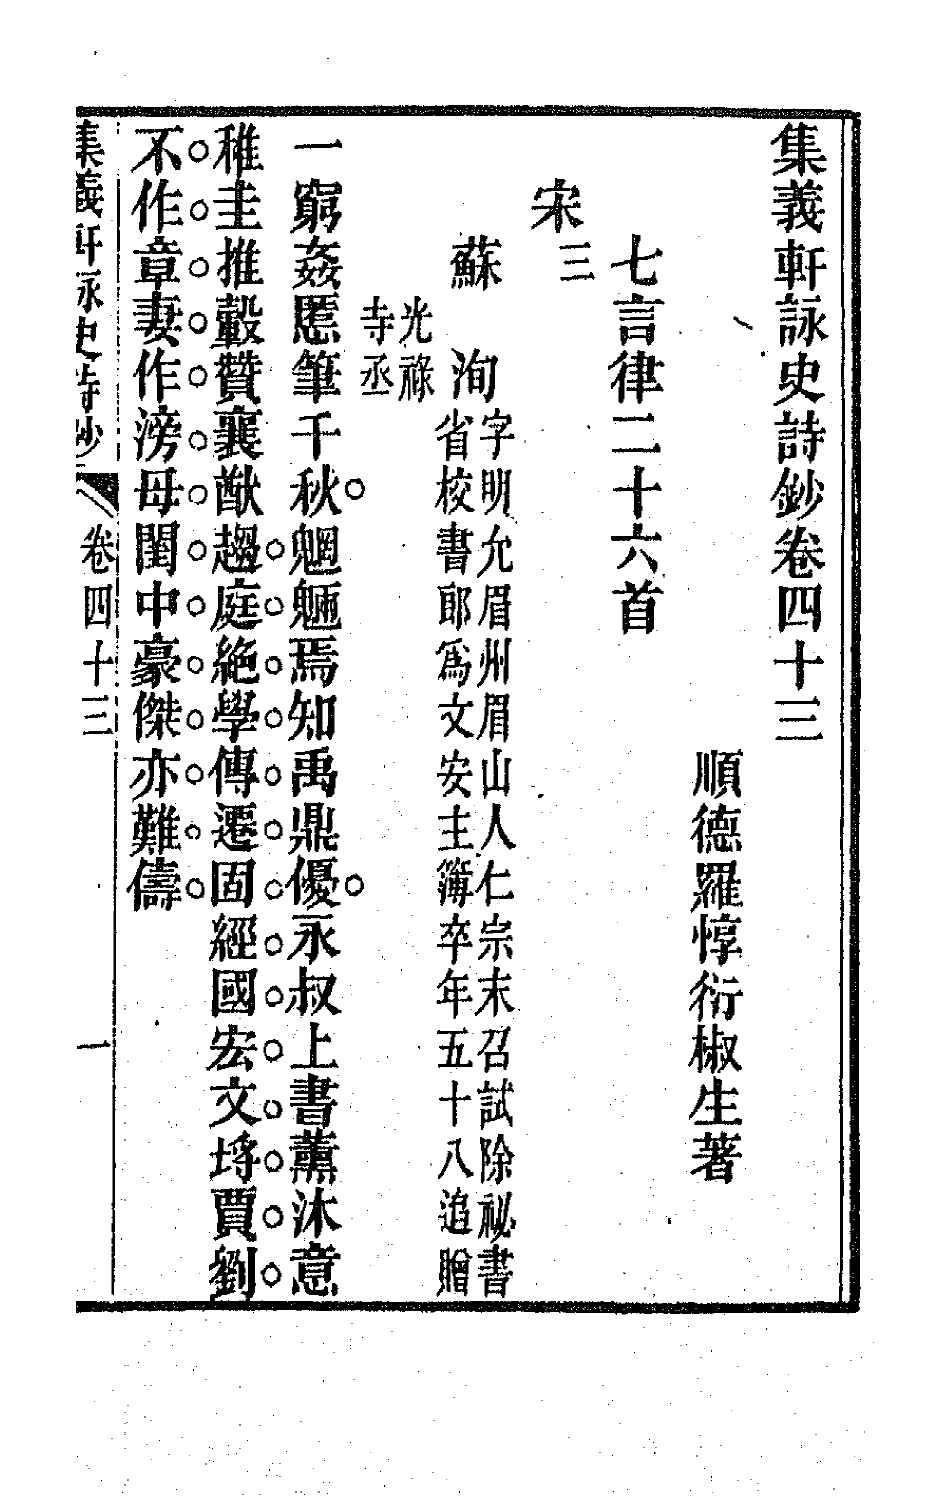 集義軒詠史詩鈔卷四十三
順德羅惇衍椒生著
七言律二十六首
宋三
蘇洵字明允眉州眉山人仁宗末召試除祕書
省校書郎爲文安主簿卒年五十八追贈
光祿
寺丞
一窮姦慝筆千秋魍魎焉知禹鼎優永叔上書薰沐意
稚圭推轂贊襄猷趨庭絶學傳遷固經國宏文埓賈劉
不作章妻作滂母閨中豪傑亦難儔
集義軒詠史詩鈔 卷四十三 一